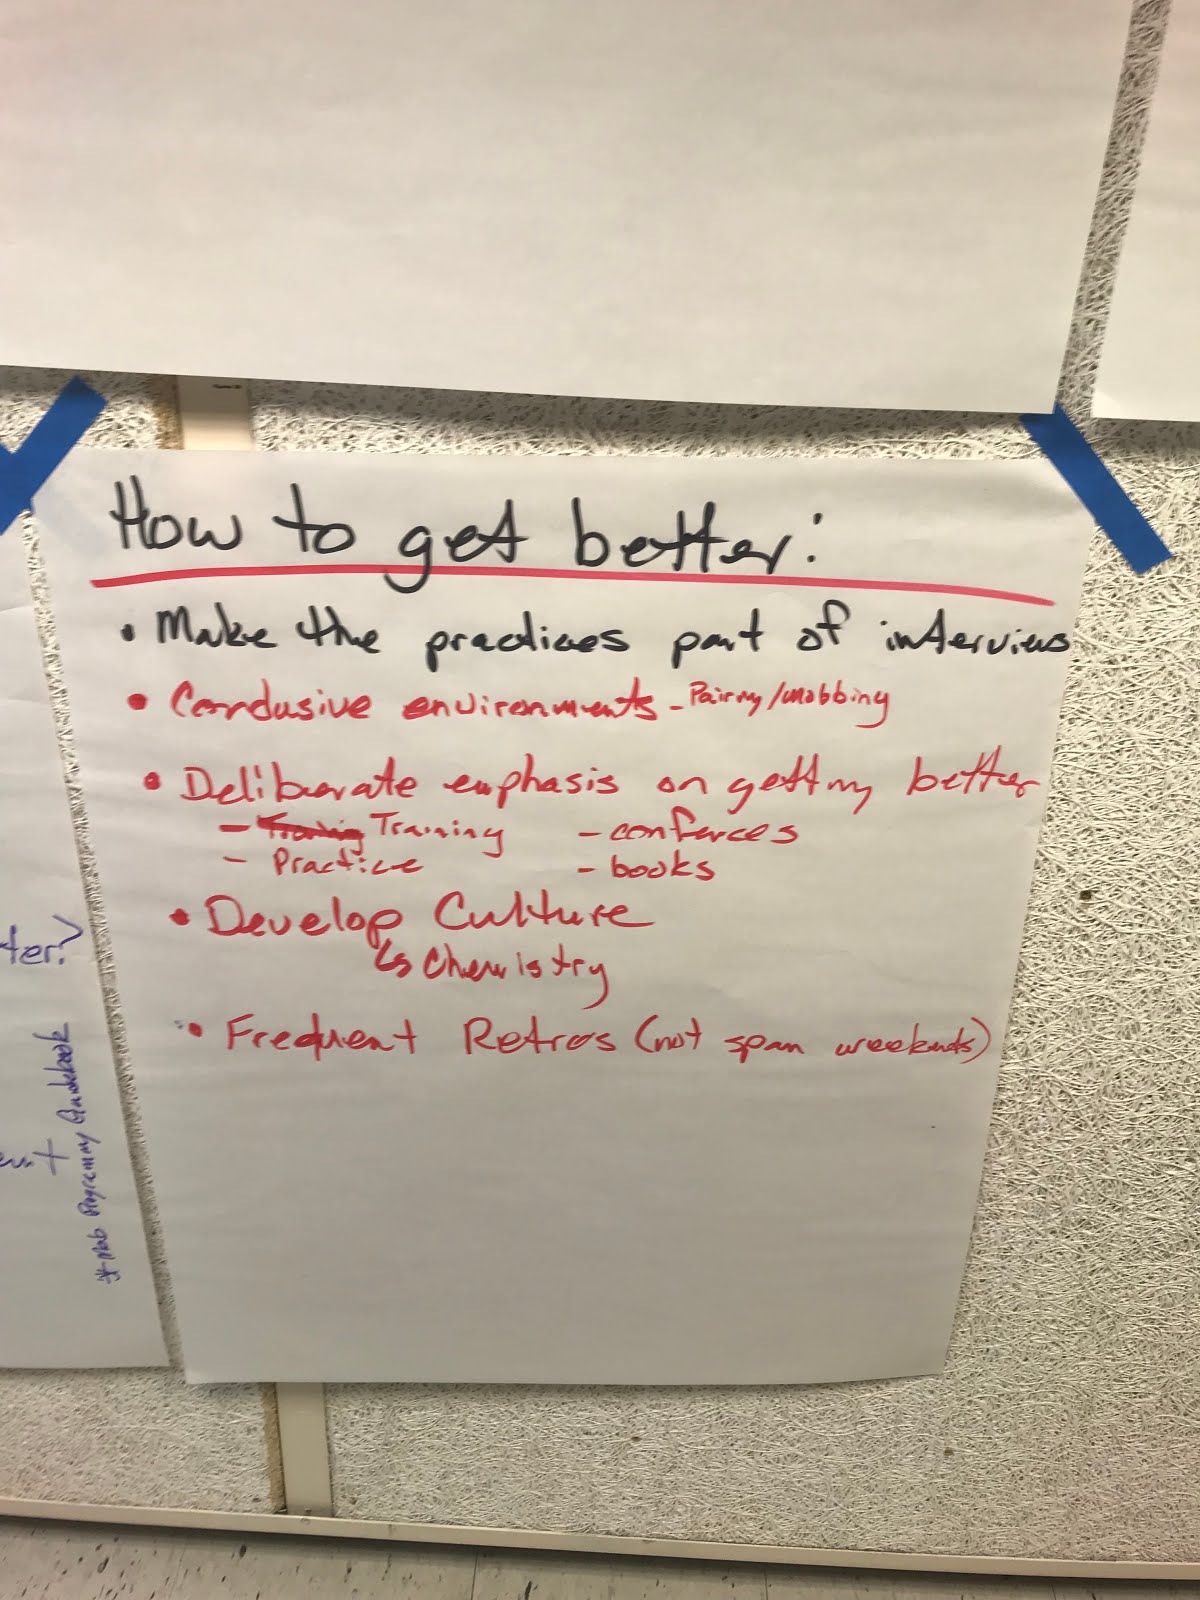 How to get better:
• Make the practices part of interviews
• Condusive environments - Pairing/mobbing
• Deliberate emphasis on getting better
- Training - conferces
- Practice - books
• Develop Culture
↳ Chemistry
• Frequent Retros (not span weekends)
ter?
* Mob Programming Guidebook